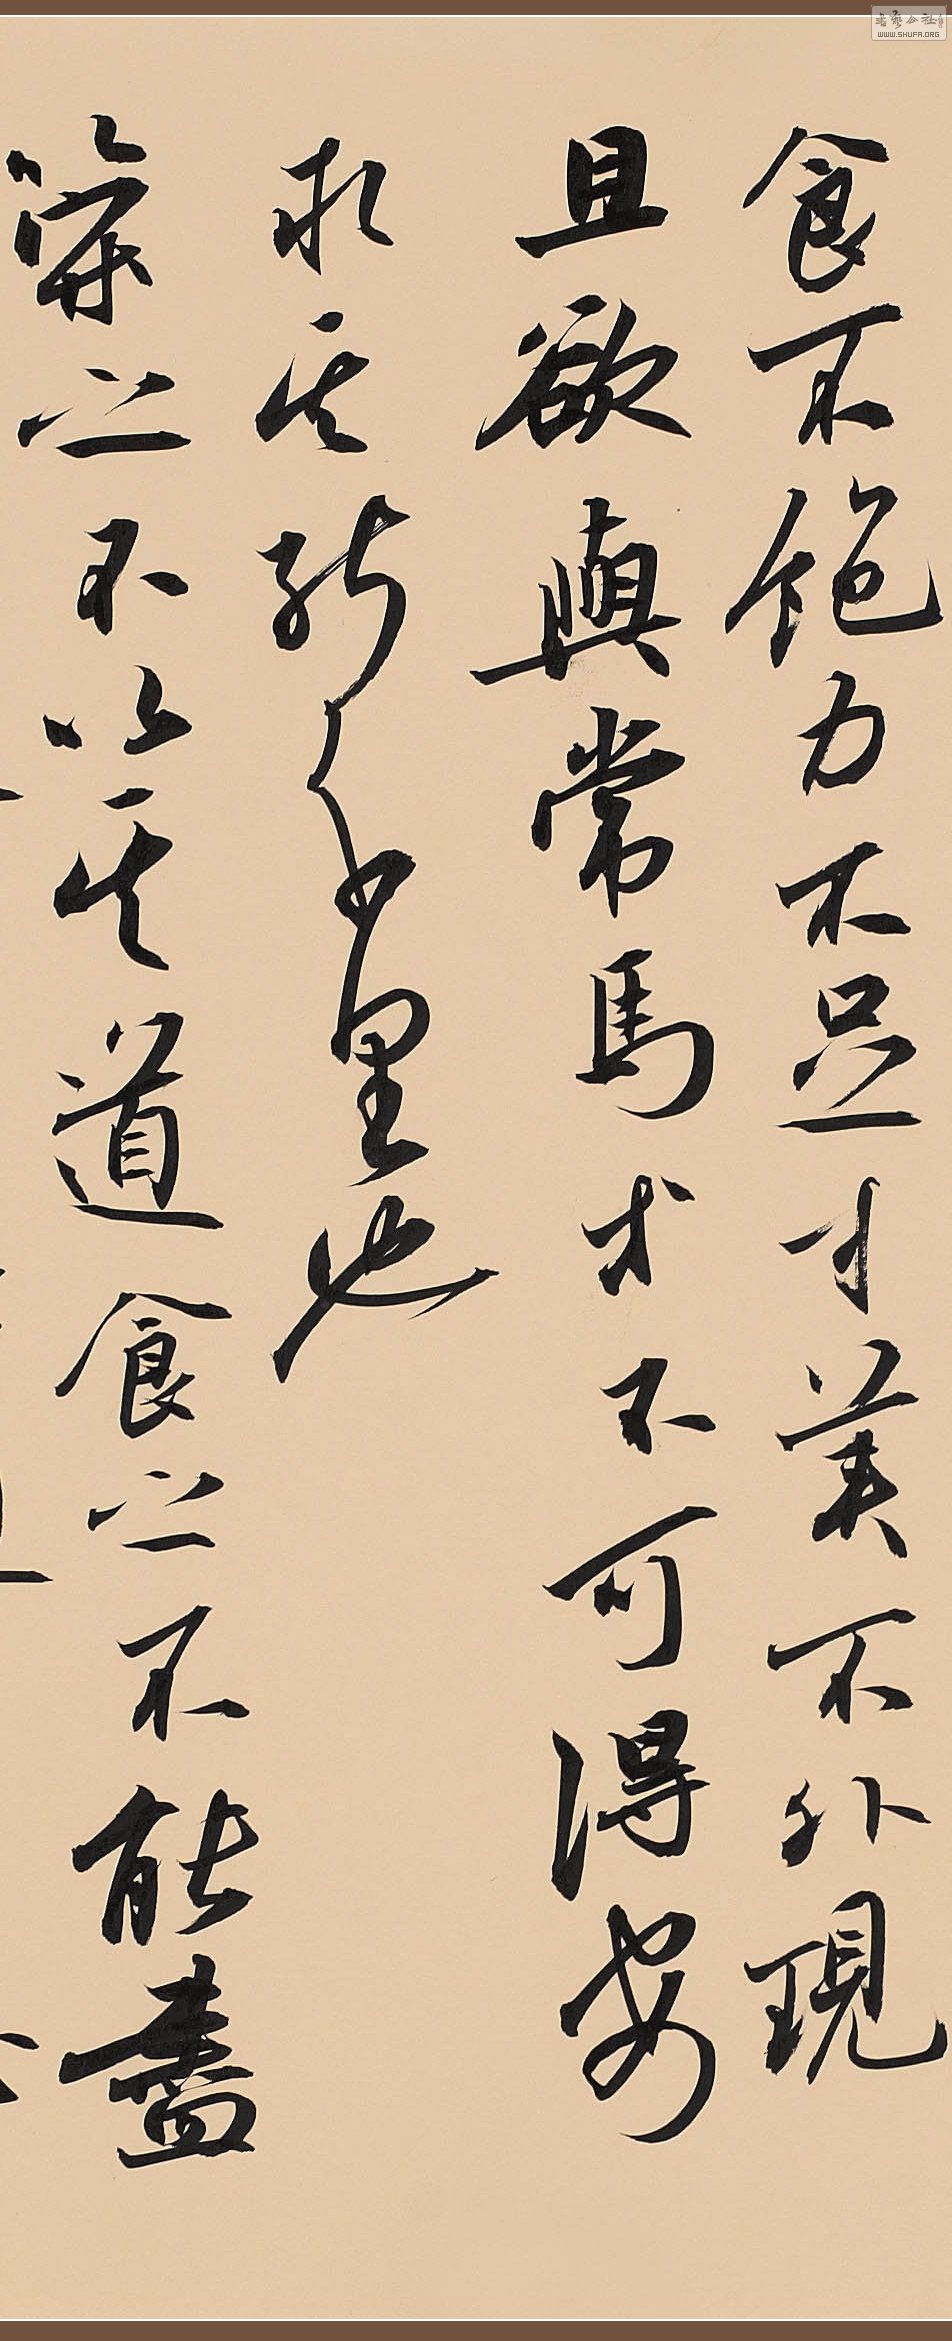 食不飽力不足才美不外現
且欲與常馬等不可得安
求其能千里也
策之不以其道食之不能盡
書藝公社
WWW.SHUFA.ORG